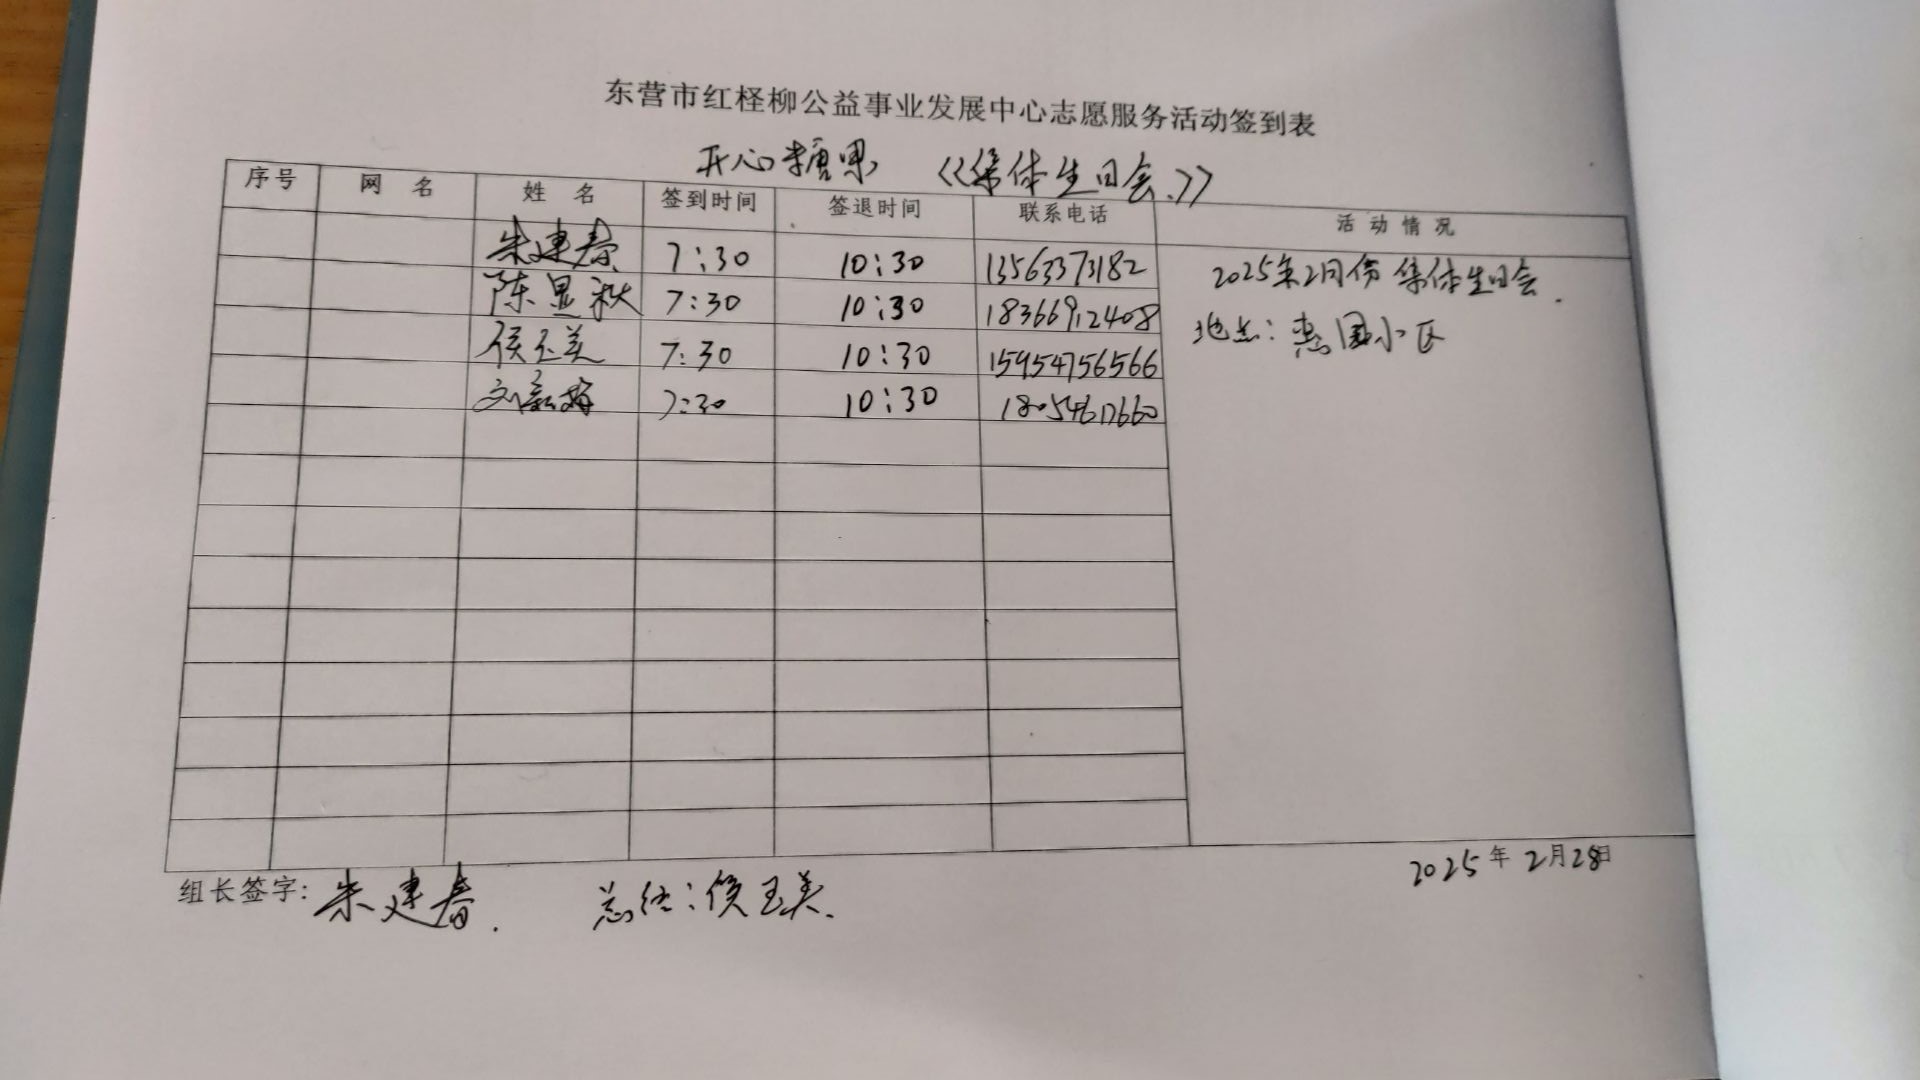 东营市红柽柳公益事业发展中心志愿服务活动签到表
开心糖果 《集体生日会.》
序号 网名 姓名 签到时间 签退时间 联系电话 活动情况
朱建春 7:30 10:30 13563373182
2025年2月份集体生日会.
陈显秋 7:30 10:30 18366912408
地点: 小区
侯玉美 7:30 10:30 15954756566
刘 梅 7:30 10:30 18054617660
2025年2月28日
组长签字: 朱建春. 总结:侯玉美.